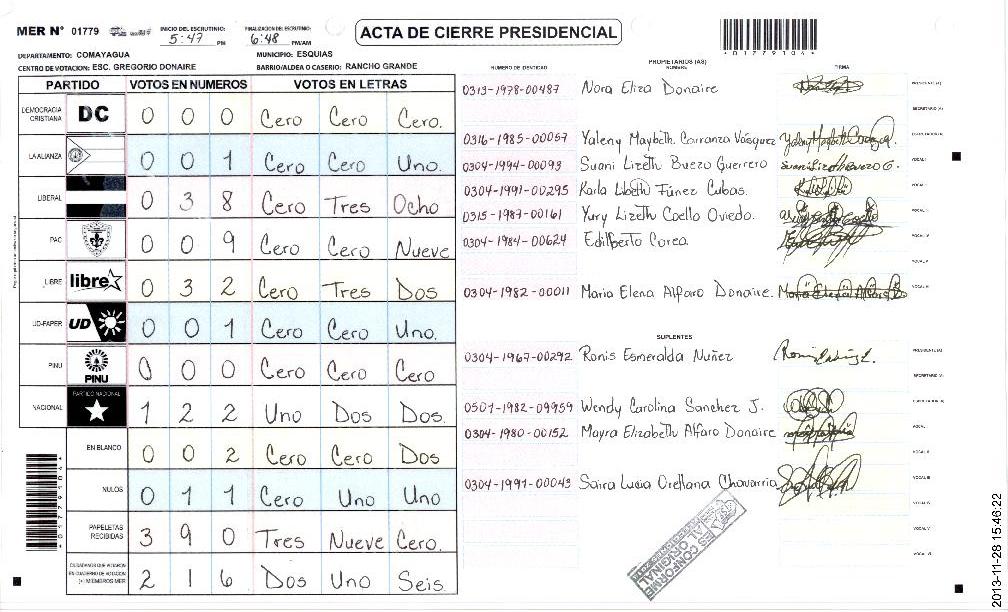 MER N° 01779
INICIO DEL ESCRUTINIO: 5:47 PM
FINALIZACION DEL ESCRUTINIO: 6:48 PM/AM
ACTA DE CIERRE PRESIDENCIAL
*01779104*
DEPARTAMENTO: COMAYAGUA
MUNICIPIO: ESQUIAS
CENTRO DE VOTACION: ESC. GREGORIO DONAIRE
BARRIO/ALDEA O CASERIO: RANCHO GRANDE
PARTIDO VOTOS EN NUMEROS VOTOS EN LETRAS
DEMOCRACIA CRISTIANA DC 0 0 0 Cero Cero Cero.
LA ALIANZA 0 0 1 Cero Cero Uno.
LIBERAL 0 3 8 Cero Tres Ocho
PAC 0 0 9 Cero Cero Nueve
LIBRE libre 0 3 2 Cero Tres Dos
UD-FAPER UD 0 0 1 Cero Cero Uno.
PINU PINU 0 0 0 Cero Cero Cero
NACIONAL PARTIDO NACIONAL 1 2 2 Uno Dos Dos.
EN BLANCO 0 0 2 Cero Cero Dos
NULOS 0 1 1 Cero Uno Uno
PAPELETAS RECIBIDAS 3 9 0 Tres Nueve Cero.
CIUDADANOS QUE VOTARON EN CUADERNO DE VOTACION (+) MIEMBROS MER 2 1 6 Dos Uno Seis.
NUMERO DE IDENTIDAD PROPIETARIOS (AS) NOMBRE FIRMA
0313-1978-00487 Nora Eliza Donaire
0316-1985-00057 Yaleny Maybeth Carranza Vásquez
0304-1994-00093 Suani Lizeth Buezo Guerrero
0304-1991-00295 Karla Libeth Funez Cubas.
0315-1987-00161 Yury Lizeth Coello Oviedo.
0304-1984-00624 Edilberto Corea
0304-1982-00011 Maria Elena Alfaro Donaire.
SUPLENTES
0304-1967-00292 Ronis Esmeralda Nuñez
0501-1982-09959 Wendy Carolina Sanchez J.
0304-1980-00152 Mayra Elizabeth Alfaro Donaire
0304-1991-00043 Saira Lucia Orellana Chavarria
ES CONFORME AL ORIGINAL
2013-11-28 15:46:22